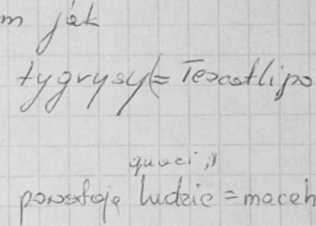 m jak
tygrysy (= Tezcatlipo
powstaję ludzie = maceh